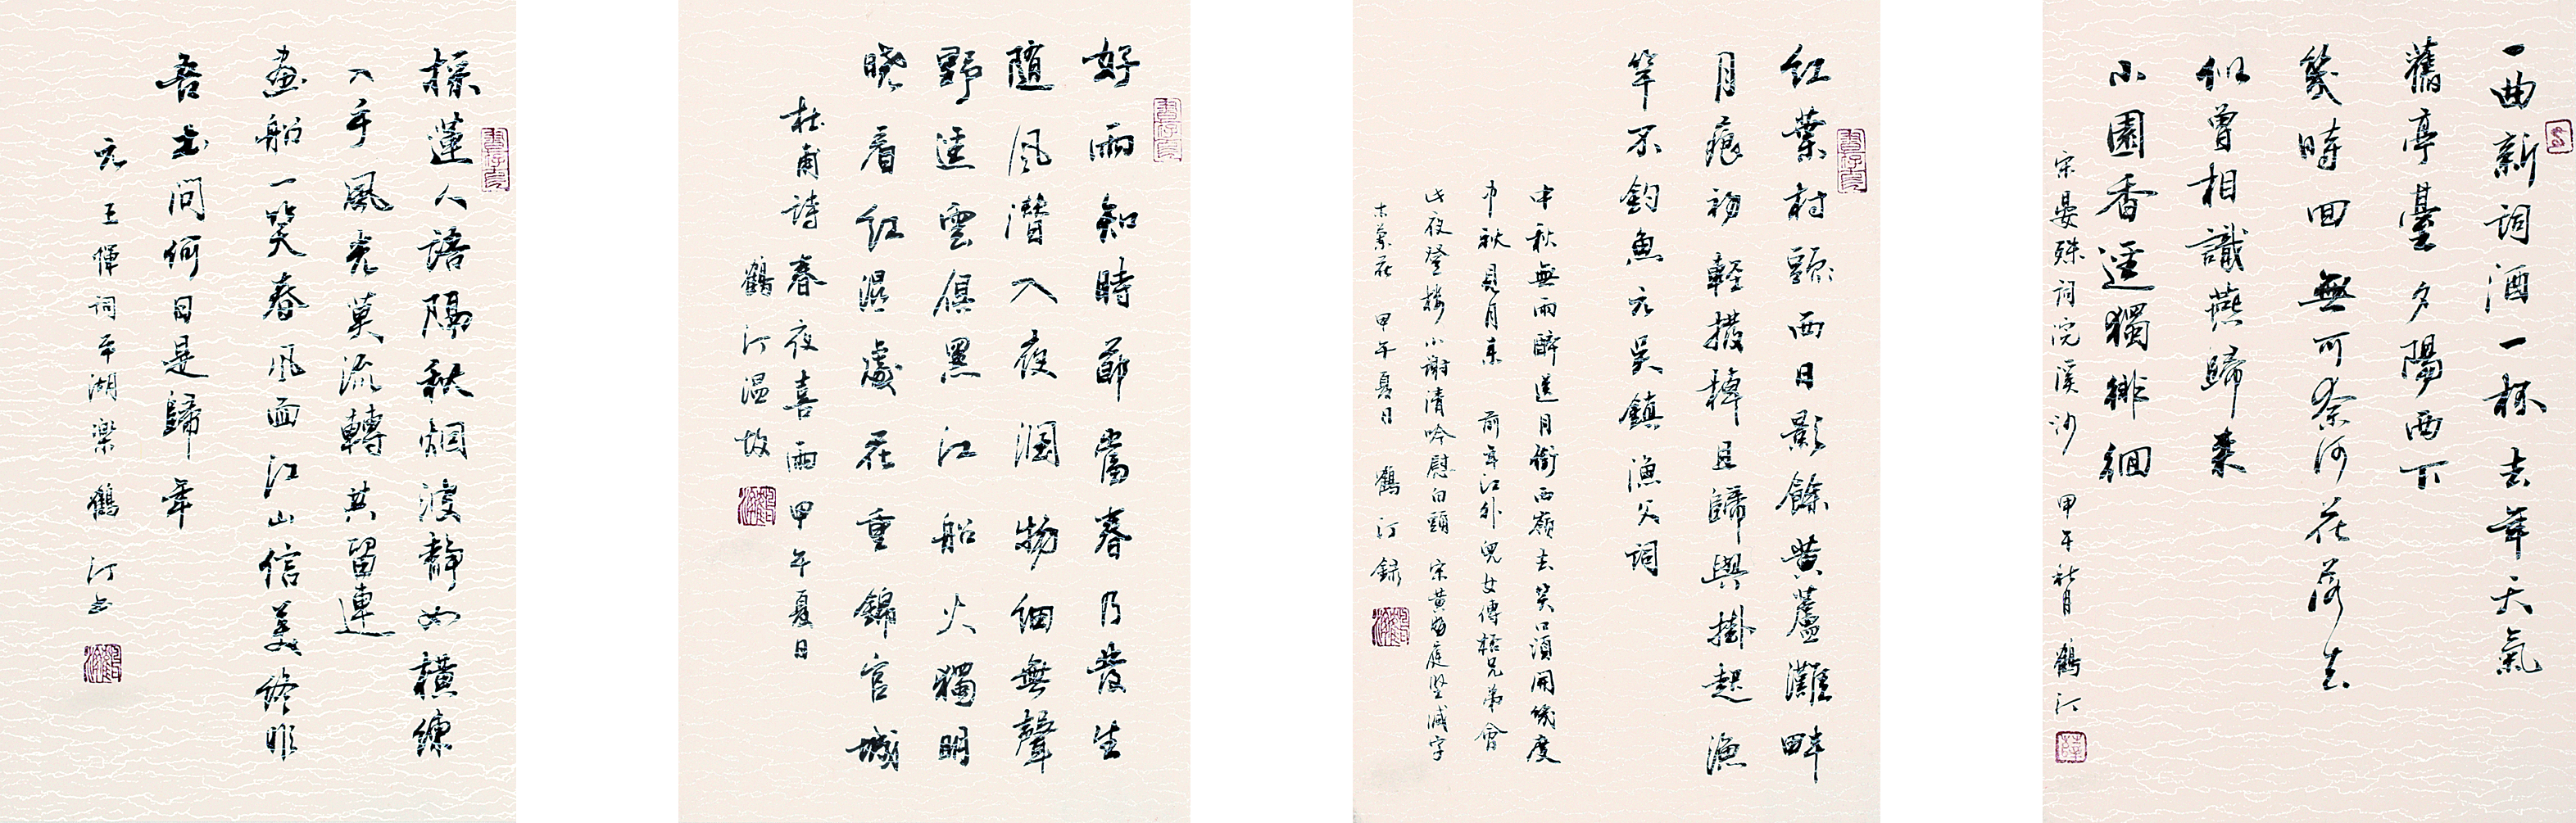 一曲新詞酒一杯去年天氣
舊亭臺夕陽西下
幾時回無可奈何花落去
似曾相識燕歸來
小園香逕獨徘徊
宋晏殊詞浣溪沙 甲午秋月 鶴汀
紅葉村頭西日影餘黃蘆灘畔
月痕初輕撥棹且歸與掛起漁
竿不釣魚元吳鎮漁父詞
中秋無雨醉送月銜西嶺去笑口須開幾度
中秋見月來 前年江外兒女傳杯兄弟會
此夜登樓小謝清吟慰白頭 宋黃庭堅減字
木蘭花 甲午夏日 鶴汀錄
好雨知時節當春乃發生
隨風潛入夜潤物細無聲
野逕雲俱黑江船火獨明
曉看紅濕處花重錦官城
杜甫詩春夜喜雨 甲午夏日
鶴汀溫故
採蓮人語隔秋烟波静如橫練
入手風光莫流轉共留連
畫船一笑春風面江山信美終非
吾土問何日是歸年
元王惲詞平湖樂 鶴汀書